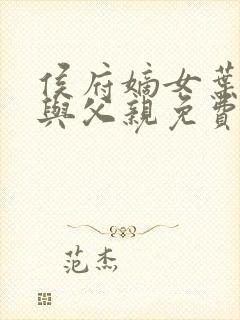 侯府嫡女葉
與父親免費
范杰